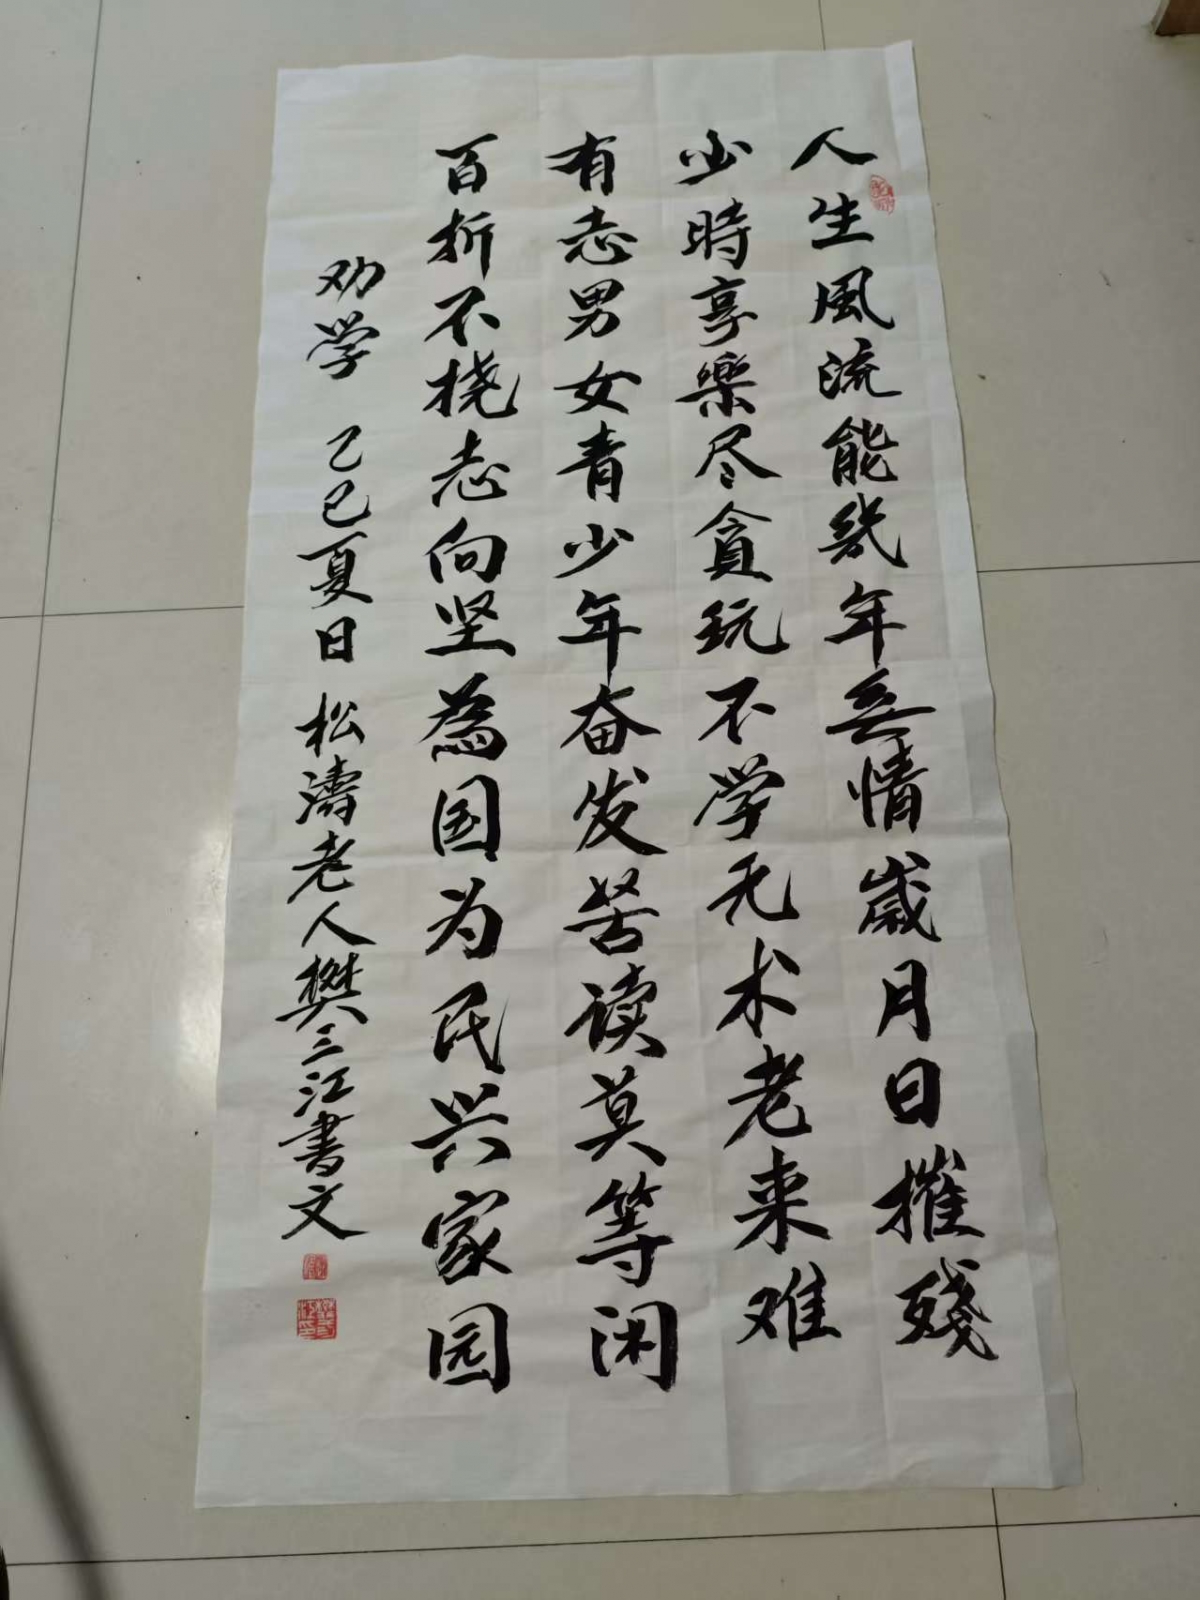 人生風流能几年無情歲月日摧殘
少時享樂尽貪玩不学无术老来难
有志男女青少年奋发苦读莫等闲
百折不挠志向坚為国为民兴家园
劝学 乙巳夏日 松濤老人樊三江書文